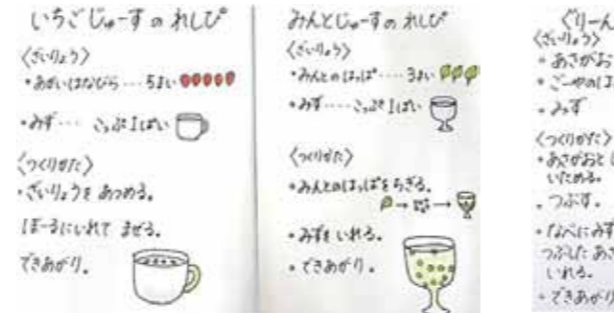 いちごじゅーすのれしぴ
〈ざいりょう〉
・あかいはなびら…5まい
・みず… こっぷ1ぱい
〈つくりかた〉
・ざいりょうを あつめる。
ぼーるにいれて まぜる。
できあがり。
みんとじゅーすのれしぴ
〈ざいりょう〉
・みんとのはっぱ…3まい
・みず…こっぷ1ぱい
〈つくりかた〉
・みんとのはっぱをちぎる。
・みずを いれる。
・できあがり。
ぐりーん
〈ざいりょう〉
・あさがお
・ごーやのは
・みず
〈つくりかた〉
・あさがおと
いためる。
・つぶす。
・なべにみず
つぶした あさ
いれる。
・できあがり